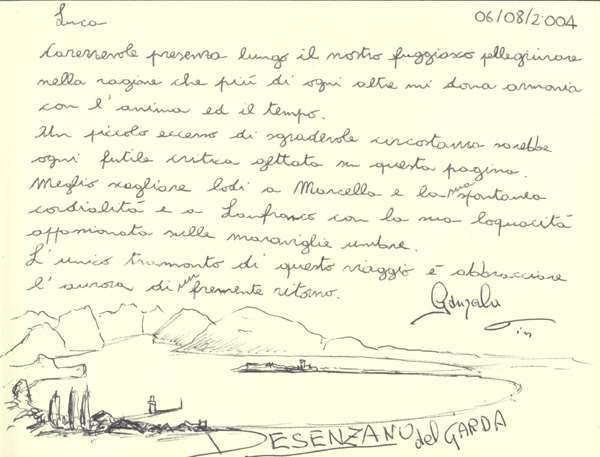 Luca
06/08/2004
Carezzevole presenza lungo il nostro fuggiasco pellegrinare
nella ragione che più di ogni altre mi dona armonia
con l'anima ed il tempo.
Un piccolo eccesso di sgradevole circostanza sarebbe
ogni futile critica gettata su questa pagina.
Meglio scagliare lodi a Marcella e la sua spontanea
cordialità e a Lanfranco con la sua loquacità
appassionata sulle meraviglie umbre.
L'unico tramonto di questo viaggio è abbracciare
l'aurora di un fremente ritorno.
DESENZANO del GARDA